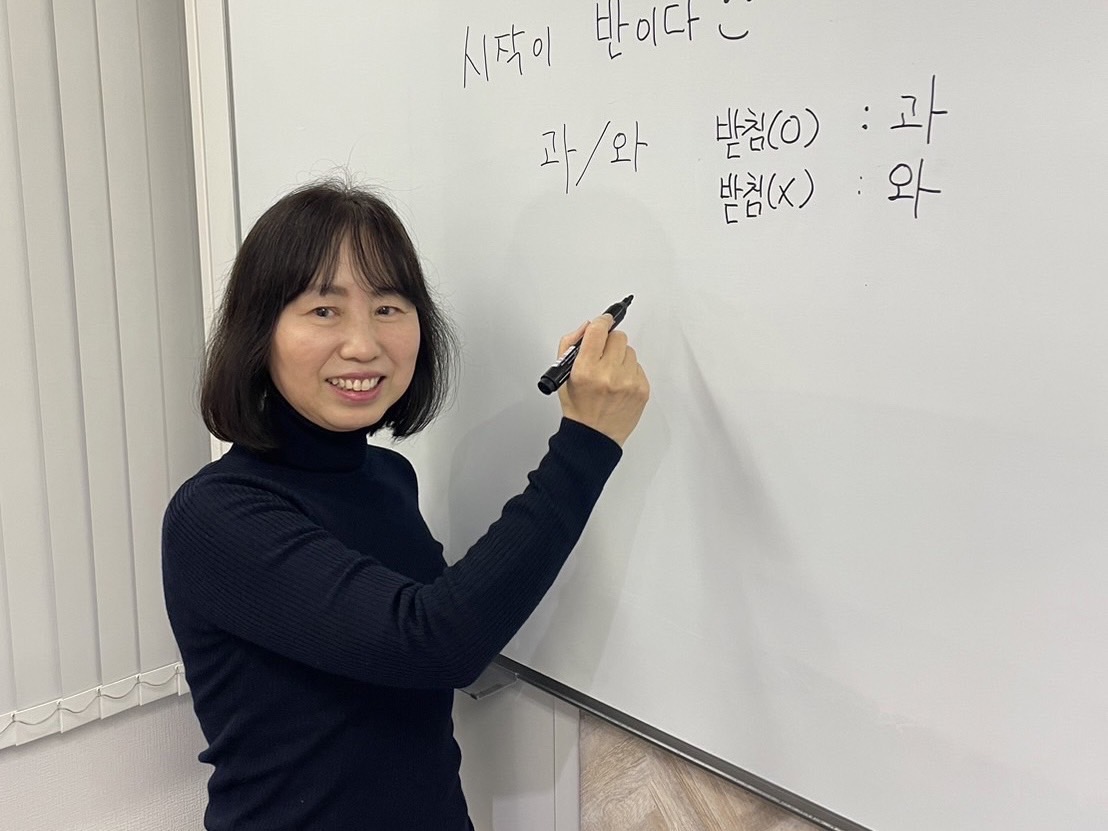 시작이 반이다
과/와
받침(O) : 과
받침(X) : 와